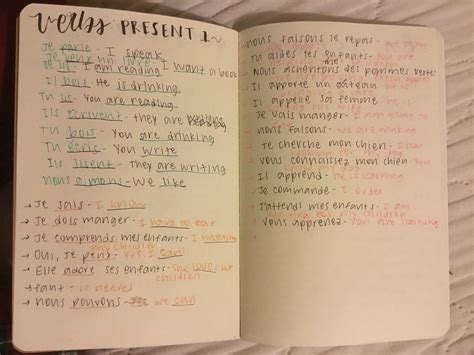 verbs PRESENT 1
Je parle - I speak
Je veux un livre - I want a book
Je lis - I am reading
Il boit - He is drinking
Tu lis - You are reading
Ils écrivent - they are
Tu bois - You are drinking
Tu écris - You write
Ils lisent - They are writing
nous aimons - We like
→ Je sais - I know
→ Je dois manger - I have to eat
→ Je comprends mes enfants - I understand my children
→ Oui, Je peux - Yes I can!
→ Elle adore ses enfants - She loves her children
→ faut - is needed
→ nous pouvons - we can
nous faisons le repas -
Tu aides tes enfants -
nous achetons des pommes vertes
Il apporte un gâteau -
Il appelle sa femme -
Je vais manger - I am going to
nous faisons - We are making
Je cherche mon chien - I am
Vous connaissez mon chien - You
Il apprend - he is learning
Je commande - I order
J'attends mes enfants - I am
waiting for my children
Vous apprenez - You are learning